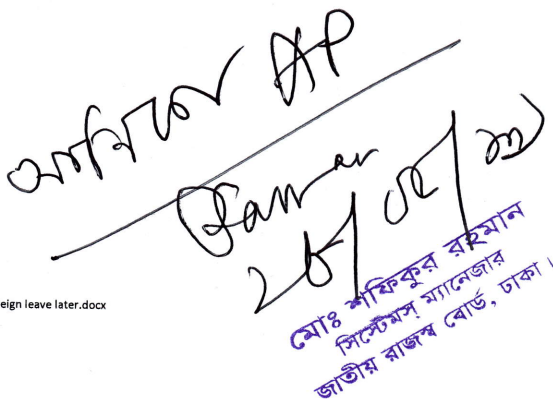 AP
২৮/০২/
eign leave later.docx
মোঃ শফিকুর রহমান
সিস্টেমস্ ম্যানেজার
জাতীয় রাজস্ব বোর্ড, ঢাকা।